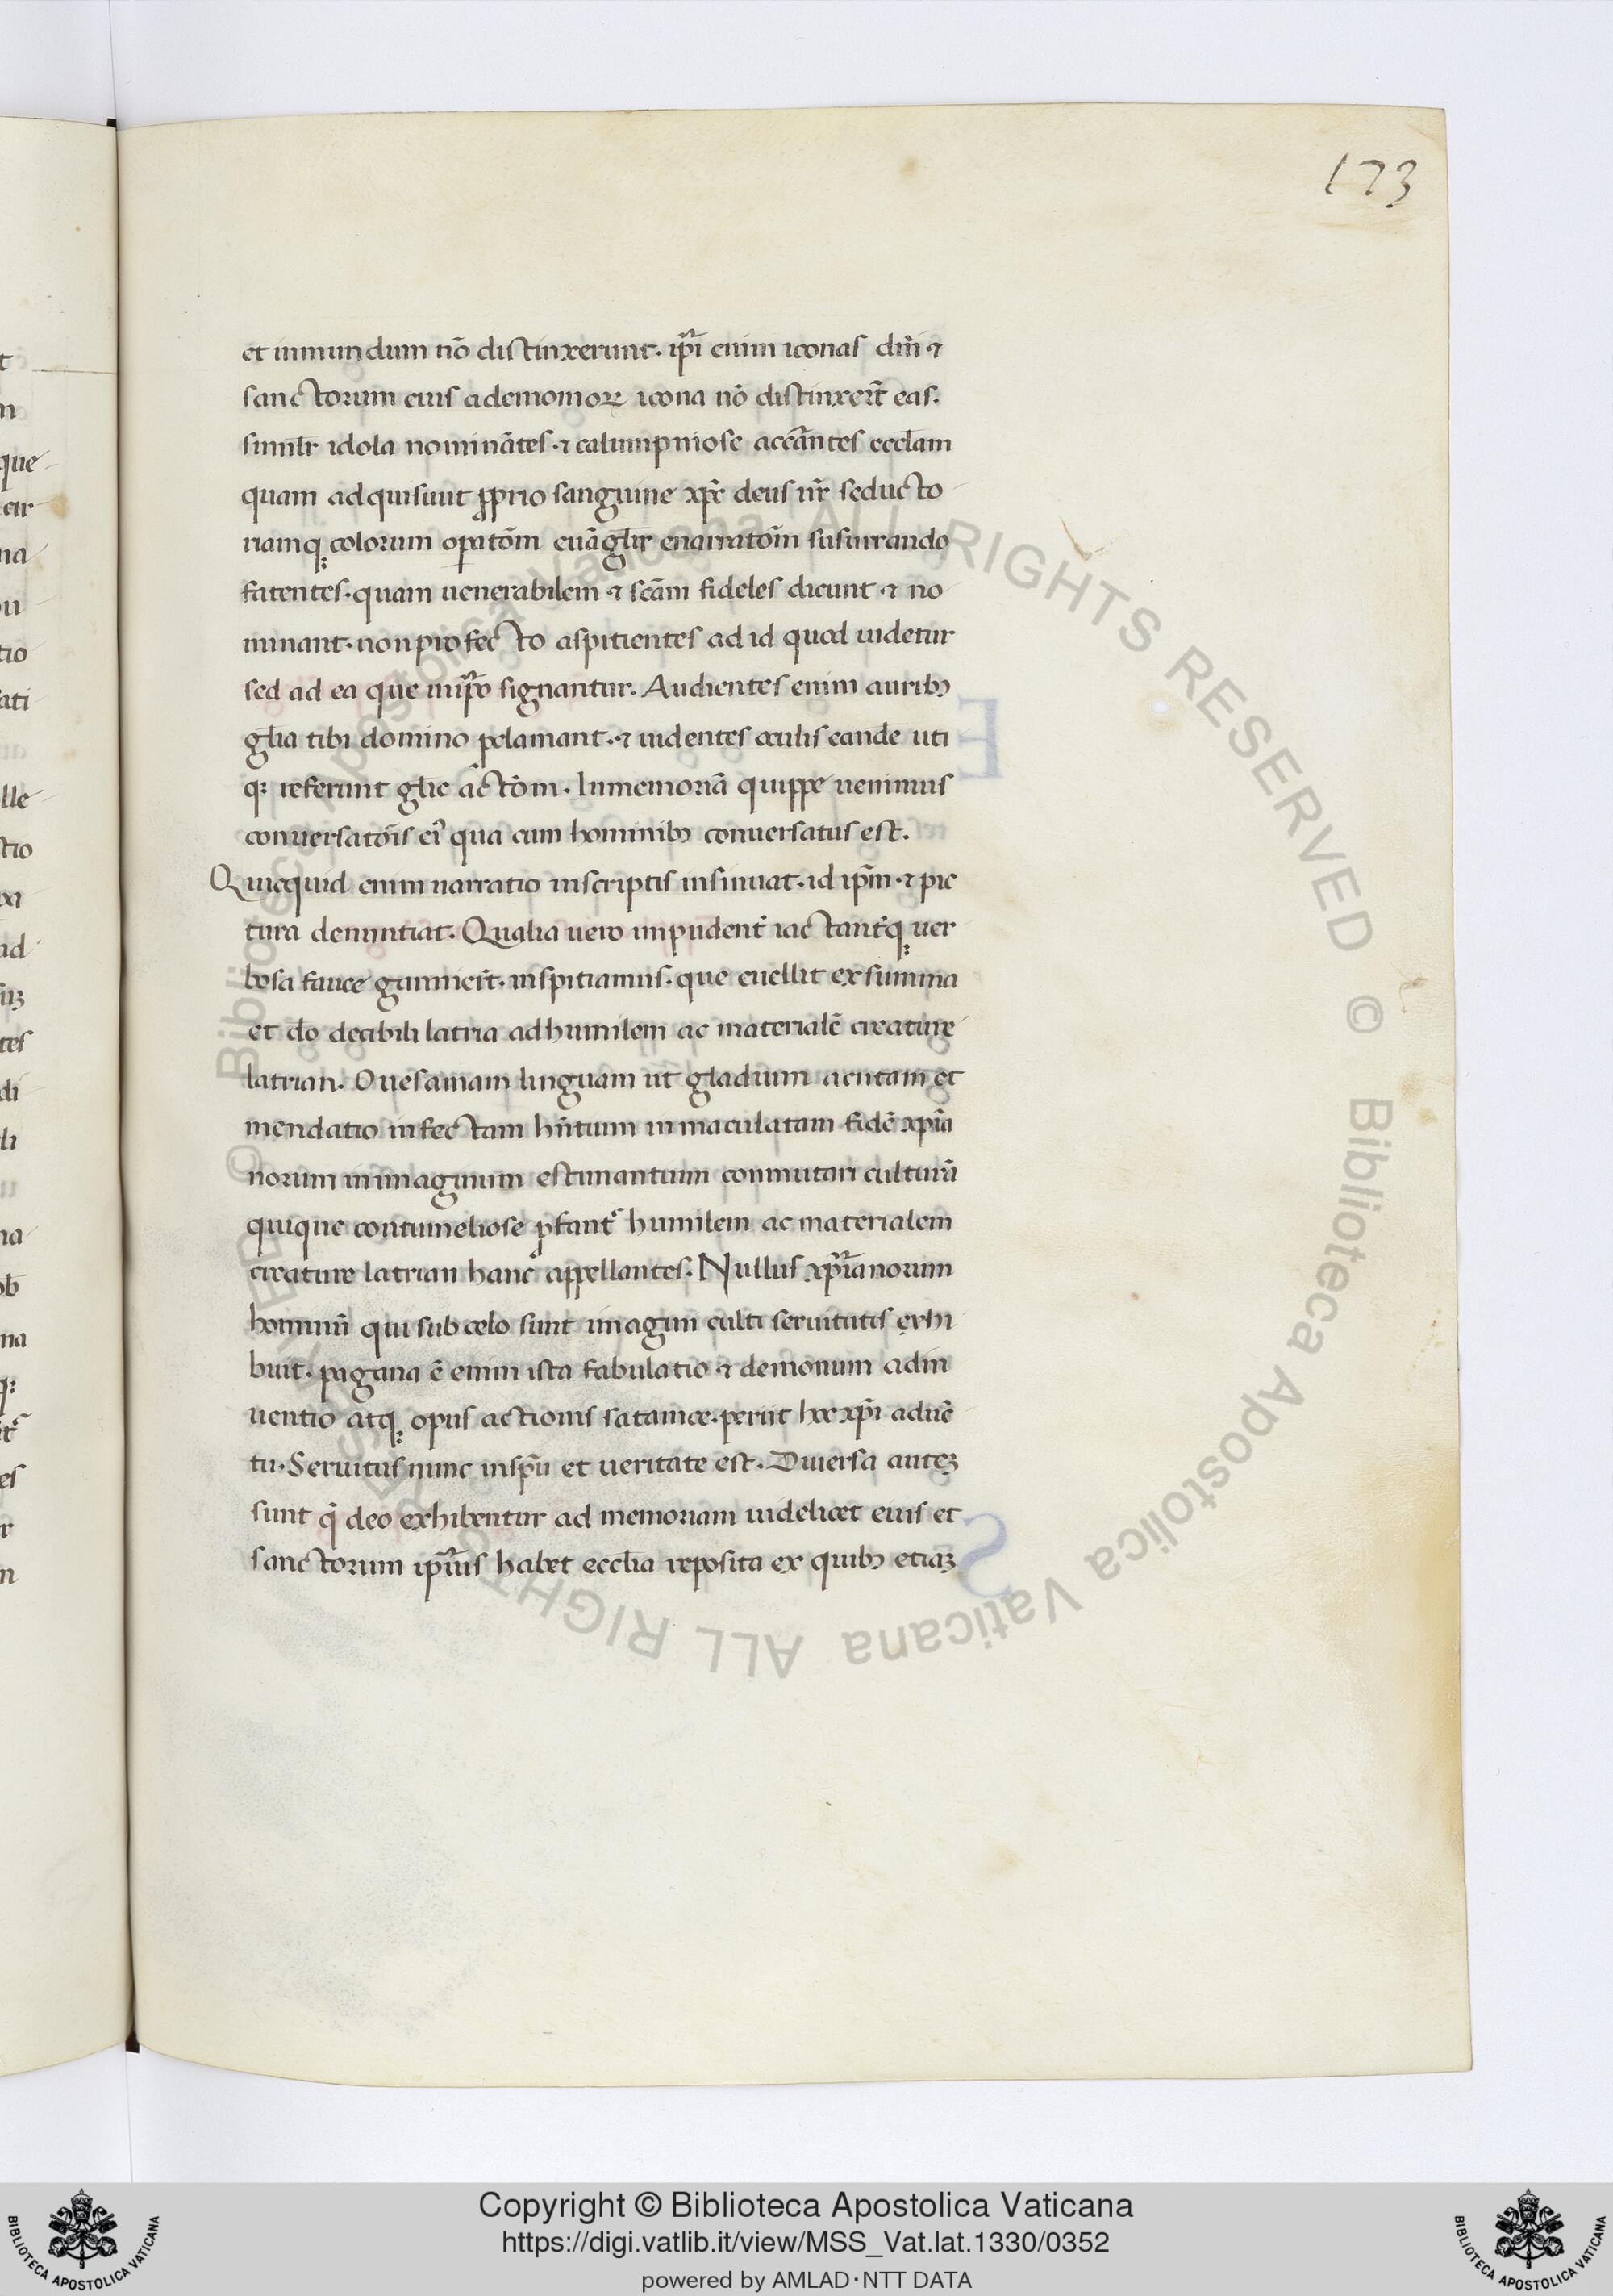 173
et inmundum nō distinxerunt. ip̄i enim iconas dn̄i ⁊
sanctorum eius a demonioꝝ icona nō distinxert̄ eas.
similr̄ idola nominātes. ⁊ calumpniose acc̄antes eccl̄am
quam adquisiuit ꝓprio sanguine xp̄c deus nr̄ seducto
riamqꝫ colorum op̄atōm euāglīr enarratōm susurrando
fatentes. quam uenerabilem ⁊ sc̄am fideles dicunt ⁊ no
minant. non profecto aspitientes ad id quod uidetur
sed ad ea que in ip̄o signantur. Audientes enim auribꝫ
gl̄ia tibi domino ꝓclamant. ⁊ uidentes oculis eandē uti
qꝫ referunt glīe āctōm. In memoriā quippe uenimus
conuersatōis ei᾽ qua cum hominibꝫ conuersatus est.
Quicquid enim narratio in scriptis insinuat. id ip̄m ⁊ pic
tura denuntiat. Qualia uero impudent᾽ iactant᾽qꝫ uer
bosa fauce ganniert̄. inspitiamus. que euellit ex summa
et dō decibili latria ad humilem ac materialē creature
latrian. O uesaniam linguam ut gladium acutam et
mendatio infectam hn̄tium inmaculatam fidē xp̄ia
norum in imaginum estimantium conmutari culturā
quique contumeliose ꝓfant᾽ humilem ac materialem
creature latrian hanc appellantes. Nullus xp̄ianorum
hominū qui sub celo sunt imagini culti seruitutis exhi
buit. pagana ē enim ista fabulatio ⁊ demonum adin
uentio atqꝫ opus actionis satanice. periit hec xp̄i aduē
tu. Seruitus nunc in sp̄u et ueritate est. Diuersa auteꝫ
sunt q̄ deo exhibentur ad memoriam uidelicet eius et
sanctorum ip̄ius habet eccl̄ia reposita ex quibꝫ etiaꝫ
© Biblioteca Apostolica Vaticana ALL RIGHTS RESERVED
© Biblioteca Apostolica Vaticana ALL RIGHTS RESERVED
Copyright © Biblioteca Apostolica Vaticana
https://digi.vatlib.it/view/MSS_Vat.lat.1330/0352
powered by AMLAD·NTT DATA
BIBLIOTECA APOSTOLICA VATICANA
BIBLIOTECA APOSTOLICA VATICANA